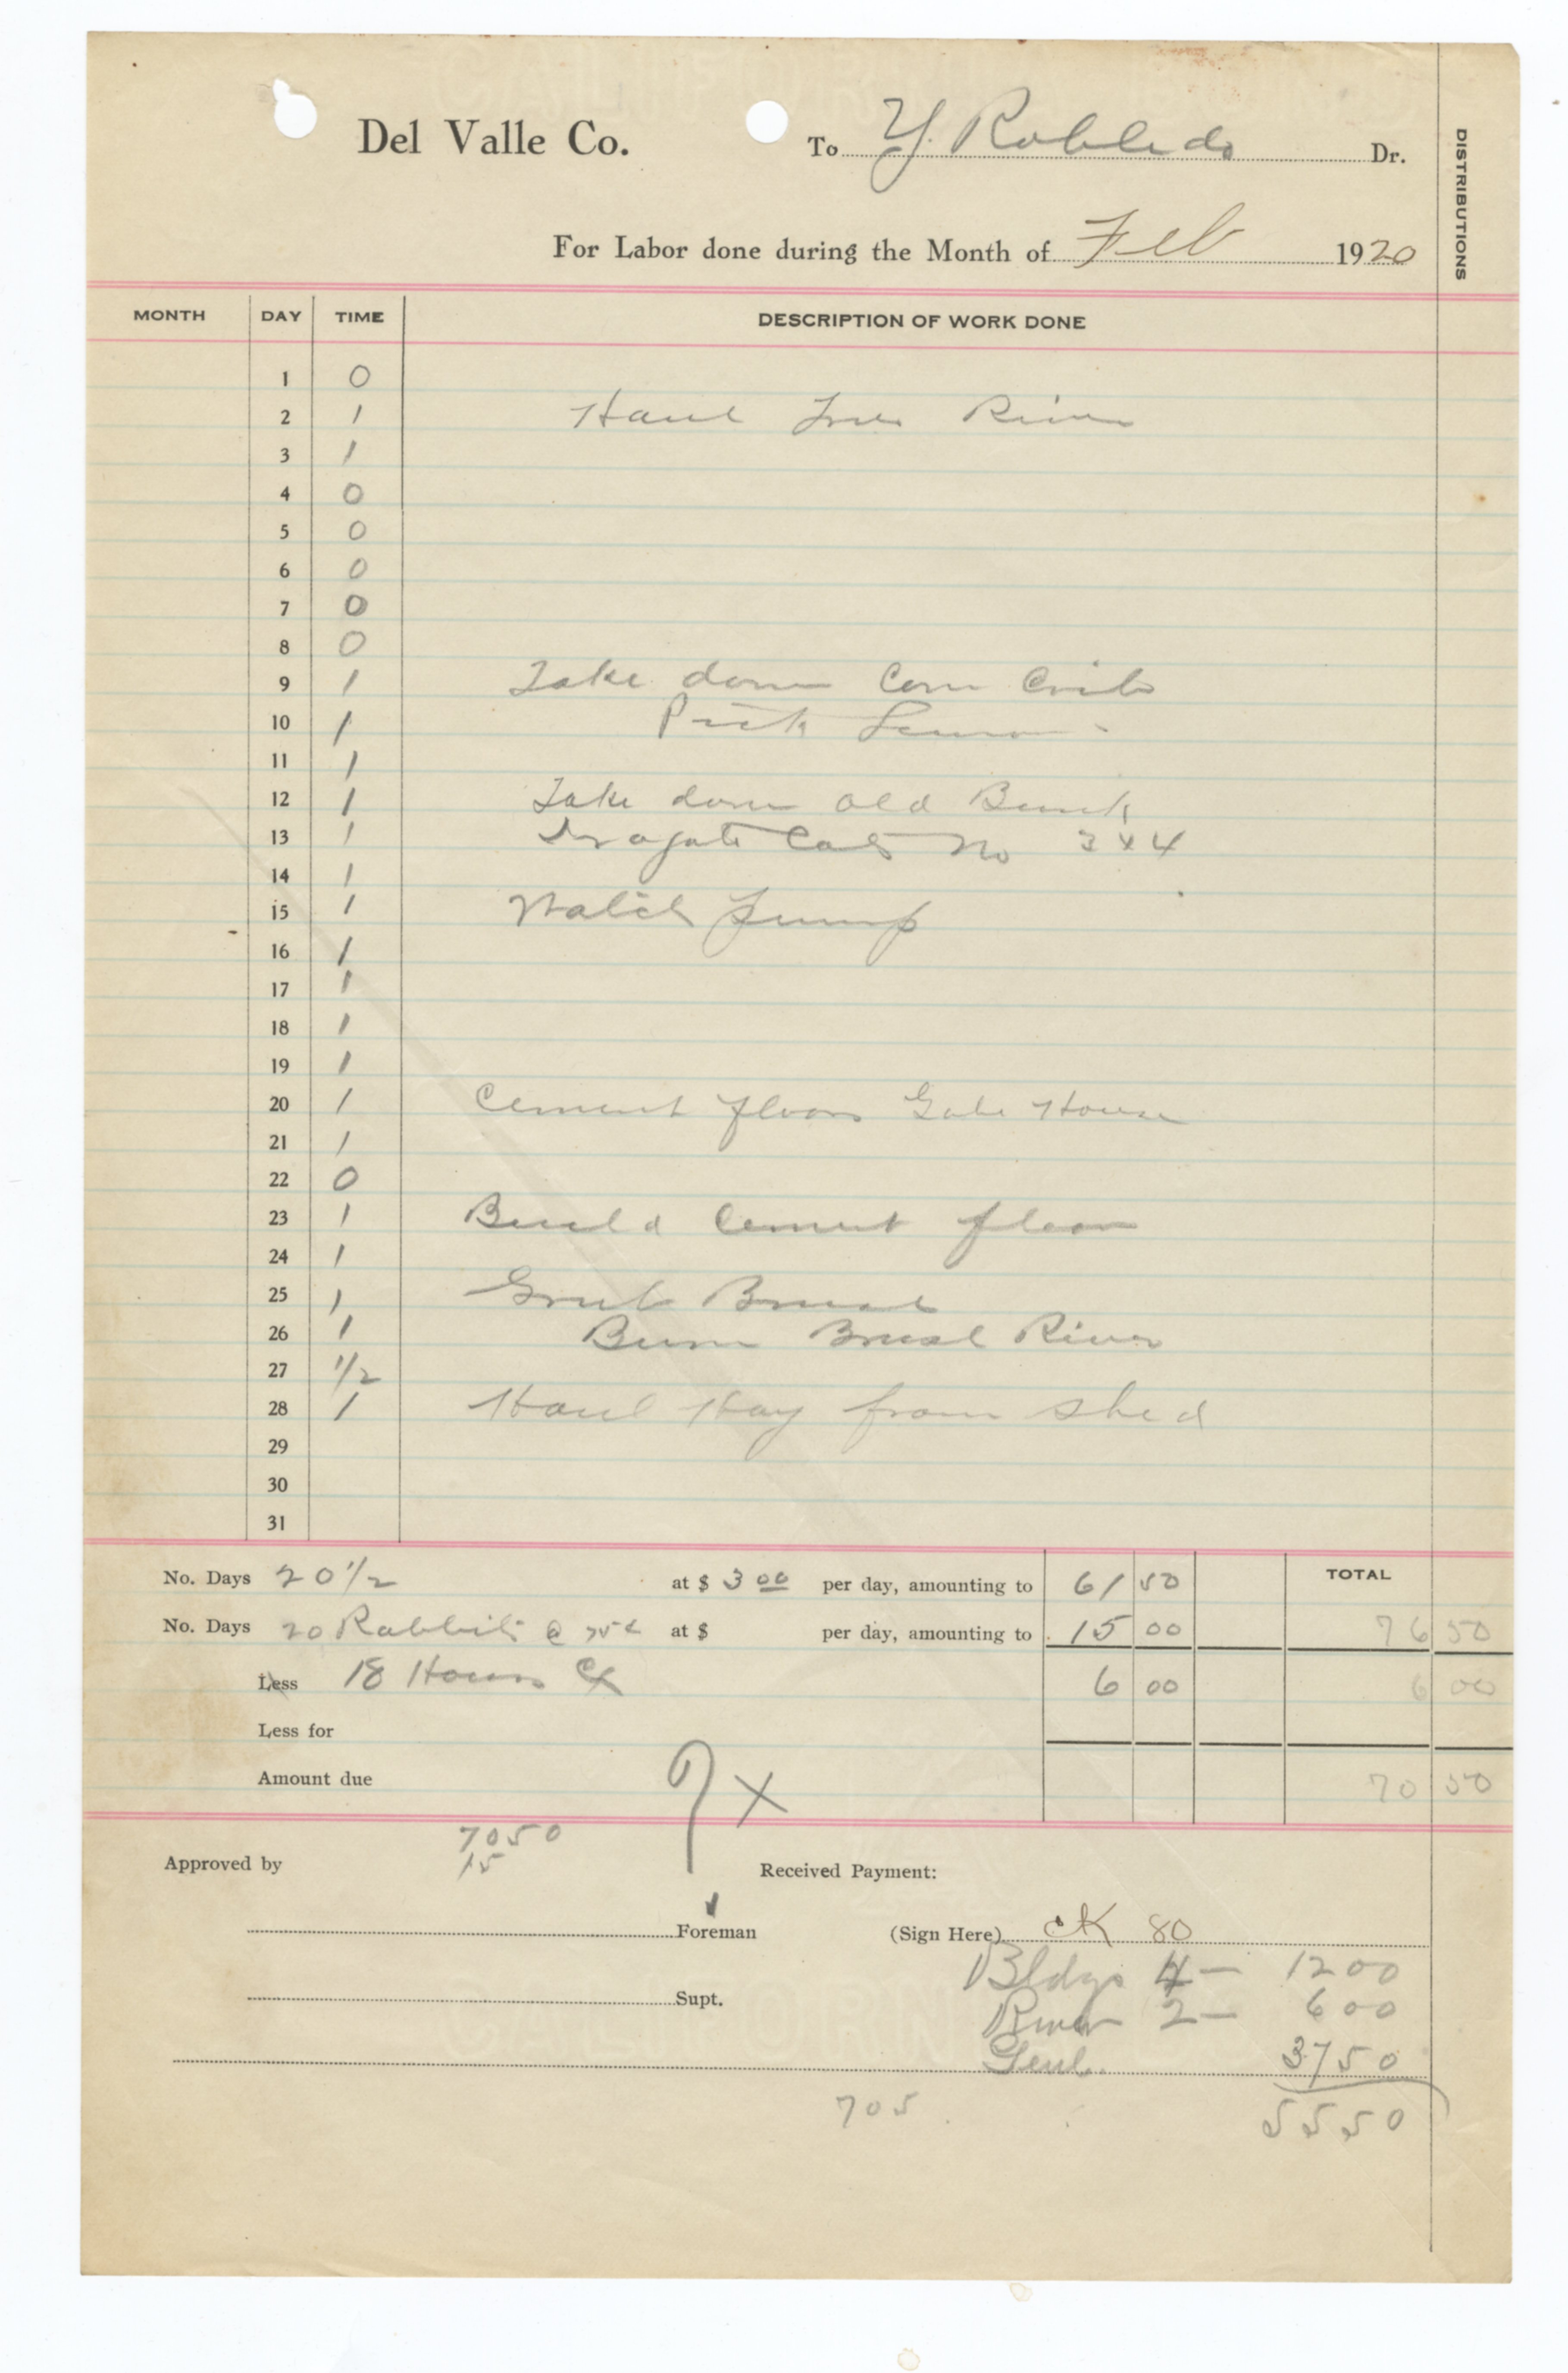 Del Valle Co. To Y. Robledo Dr.
For Labor done during the Month of Feb 1920
DISTRIBUTIONS
MONTH DAY TIME DESCRIPTION OF WORK DONE
1 0
2 1 Haul Tree River
3 1
4 0
5 0
6 0
7 0
8 0
9 1 Take down Corn Crib
10 1 Pick Lemons
11 1
12 1 Take down old Bunk
13 1 Irrogate Cal No 3 x 4
14 1
15 1 Watch Pump
16 1
17 1
18 1
19 1
20 1 Cement floor Gate House
21 1
22 0
23 1 Build Cement floor
24 1
25 1 Grub Brush
26 1 Burn Brush River
27 1/2
28 1 Haul Hay from shed
29
30
31
No. Days 20 1/2 at $ 3 00 per day, amounting to 61 50 TOTAL
No. Days 20 Rabbits @ 75¢ at $ per day, amounting to 15 00 76 50
Less 18 Hours 6 00 6 00
Less for
Amount due 70 50
7 X
7050
15
Approved by Received Payment:
Foreman (Sign Here) CK 80
Bldgs 4 — 1200
Supt. River 2 — 600
Genl. 3750
705 5550